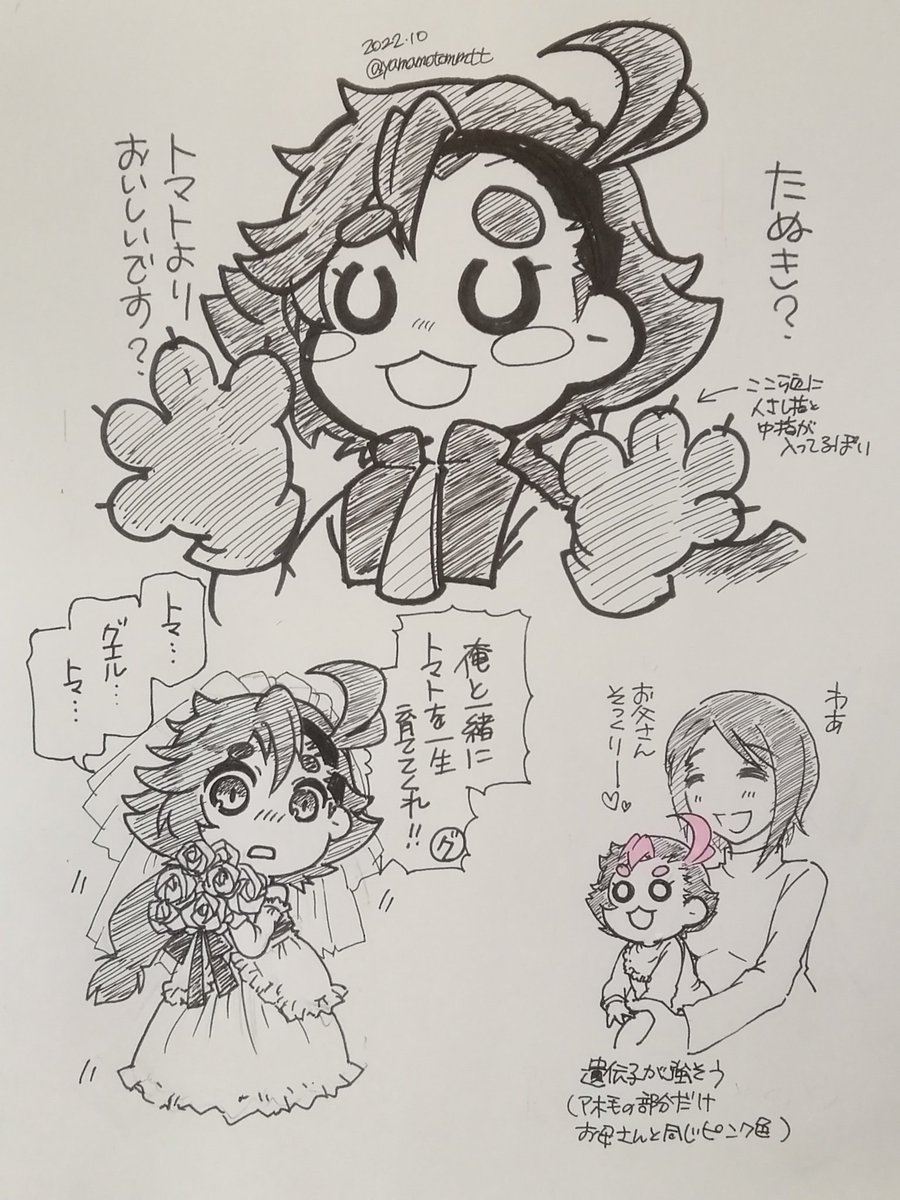 2022.10
@yamamotomttt
たぬき?
トマトより
おいしいです?
ここら辺に
人さし指と
中指が
入ってるぽい
俺と一緒に
トマトを一生
育ててくれ!!
グ
トマ…
グエル…
トマ…
わぁ
お父さん
そっくりー♡♡
遺伝子が強そう
(アホ毛の部分だけ
お母さんと同じピンク色)